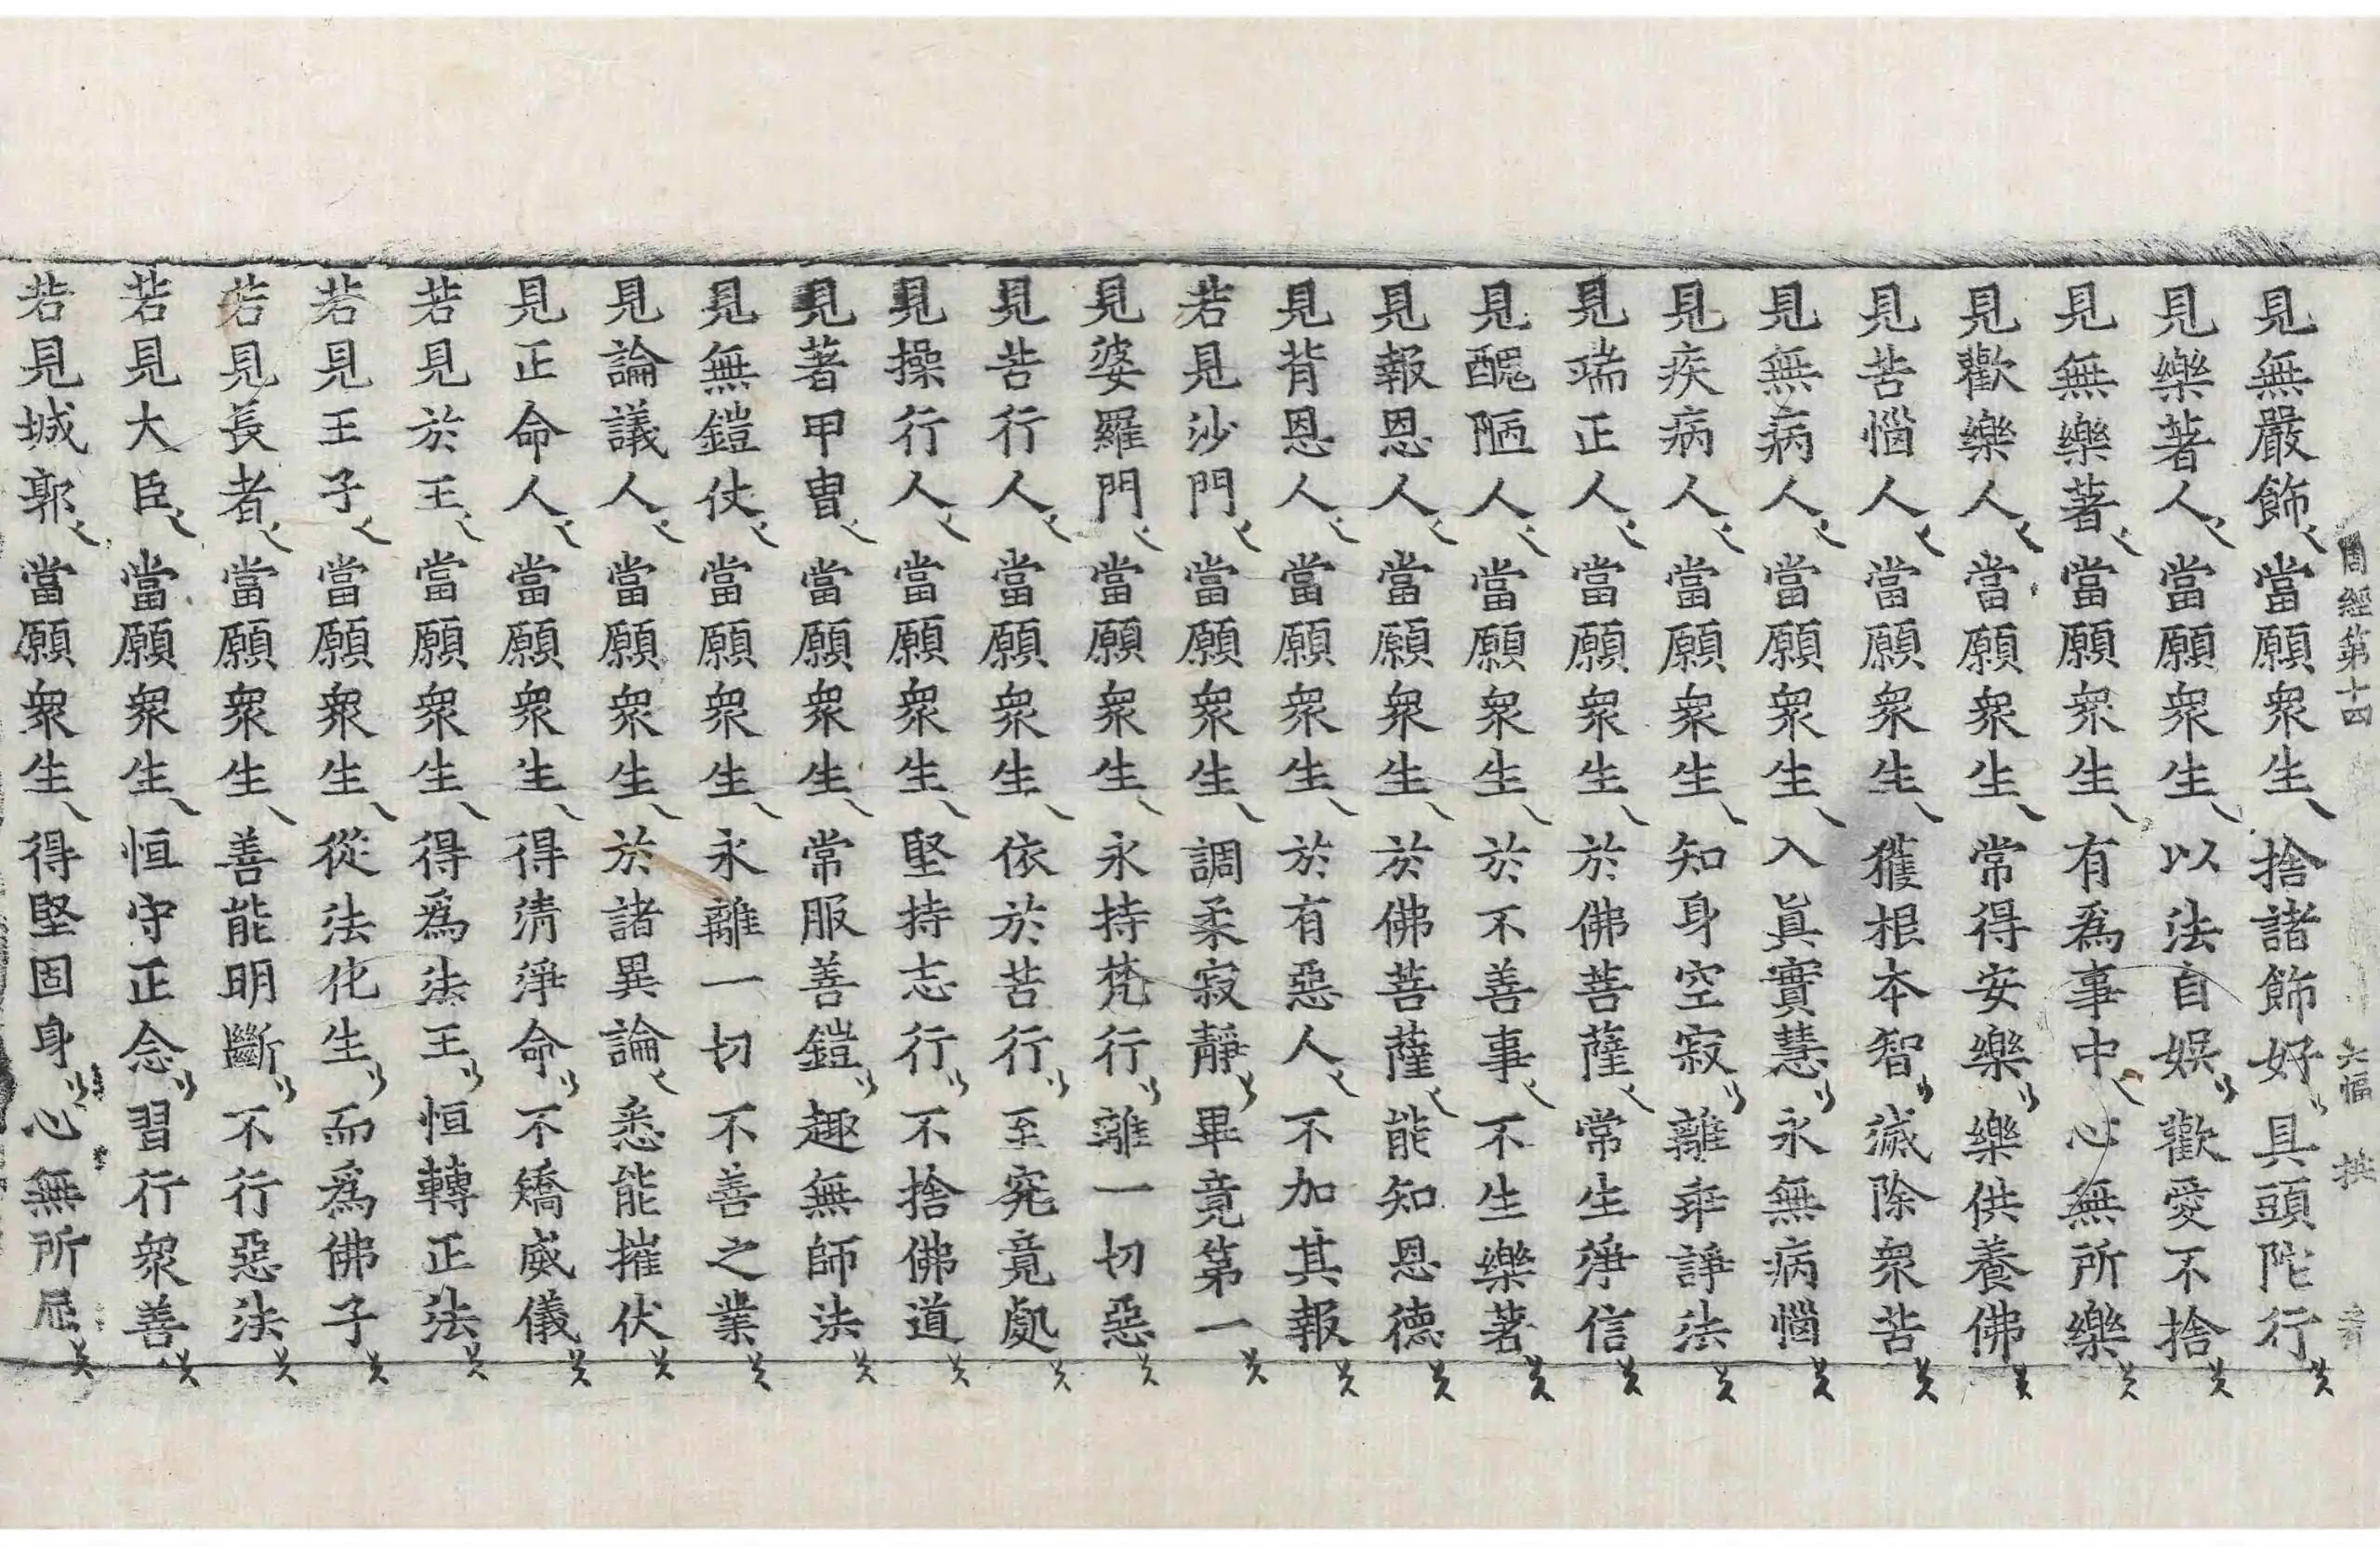 周經第十四 六幅 拱
見無嚴飾當願衆生捨諸飾好具頭陀行
見樂著人當願衆生以法自娛歡愛不捨
見無樂著當願衆生有爲事中心無所樂
見歡樂人當願衆生常得安樂樂供養佛
見苦惱人當願衆生獲根本智滅除衆苦
見無病人當願衆生入眞實慧永無病惱
見疾病人當願衆生知身空寂離乖諍法
見端正人當願衆生於佛菩薩常生淨信
見醜陋人當願衆生於不善事不生樂著
見報恩人當願衆生於佛菩薩能知恩德
見背恩人當願衆生於有惡人不加其報
若見沙門當願衆生調柔寂靜畢竟第一
見婆羅門當願衆生永持梵行離一切惡
見苦行人當願衆生依於苦行至究竟處
見操行人當願衆生堅持志行不捨佛道
見著甲冑當願衆生常服善鎧趣無師法
見無鎧仗當願衆生永離一切不善之業
見論議人當願衆生於諸異論悉能摧伏
見正命人當願衆生得淸淨命不矯威儀
若見於王當願衆生得爲法王恒轉正法
若見王子當願衆生從法化生而爲佛子
若見長者當願衆生善能明斷不行惡法
若見大臣當願衆生恒守正念習行衆善
若見城郭當願衆生得堅固身心無所屈